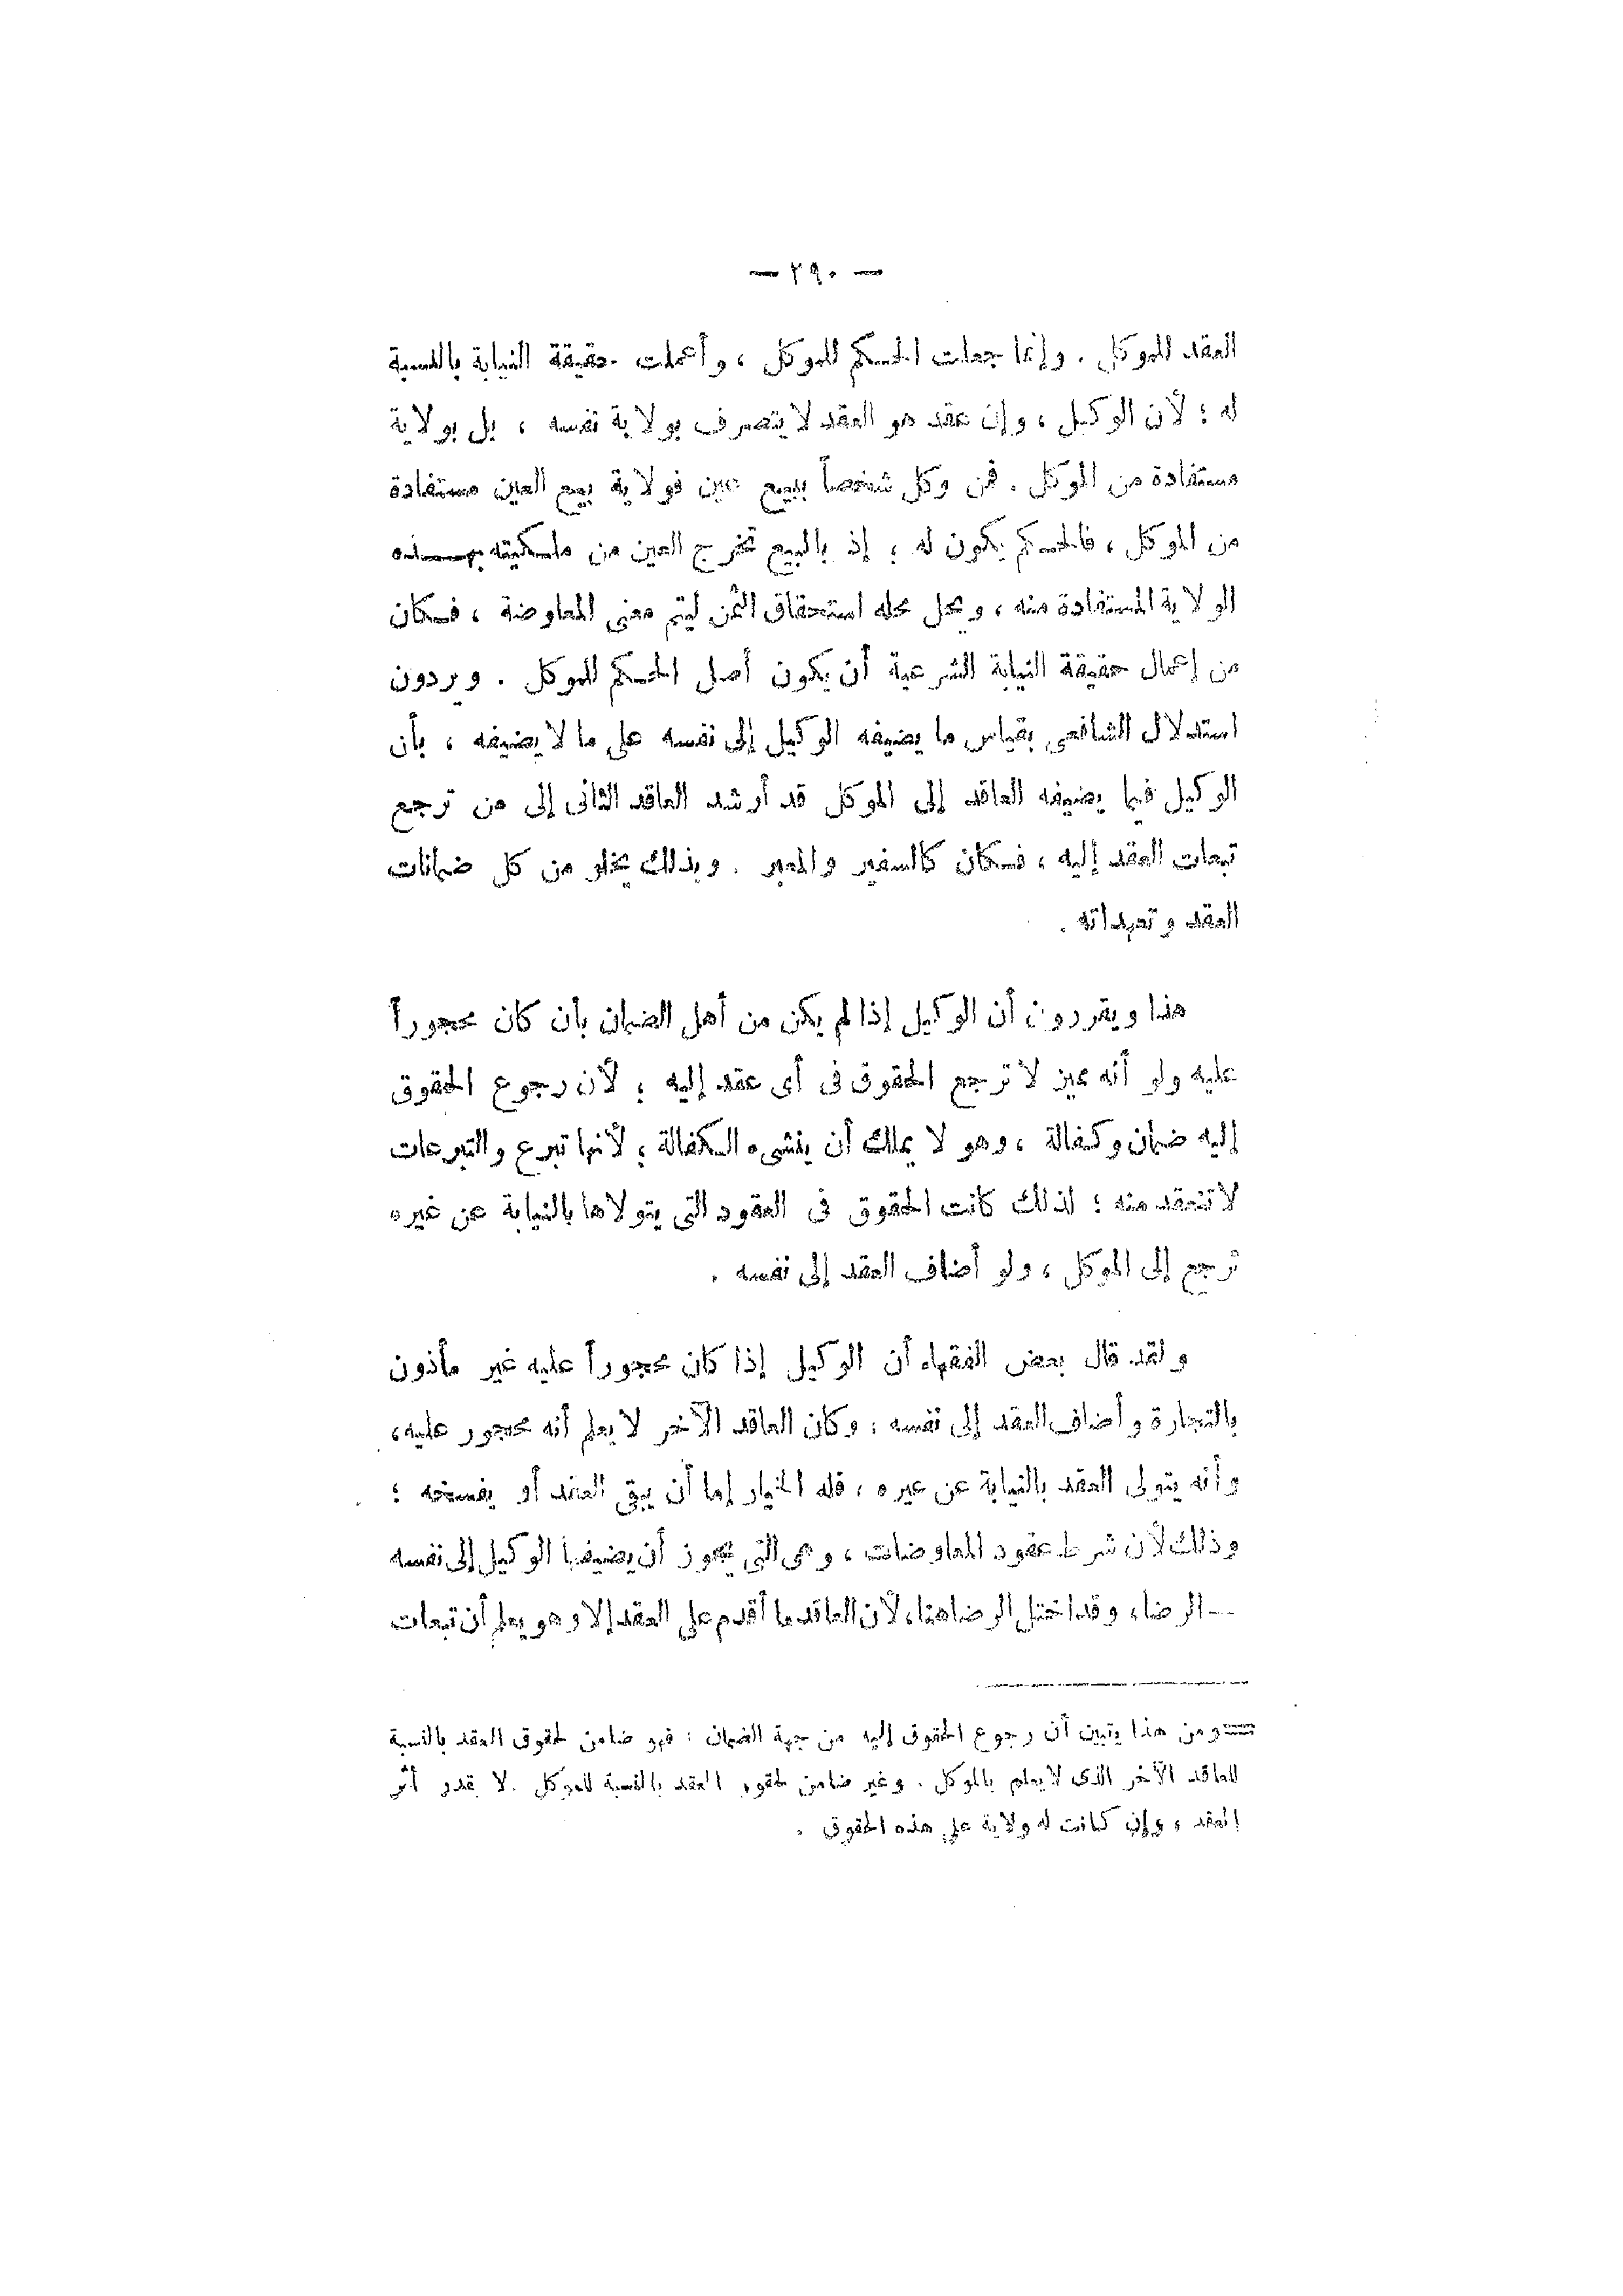 — ٢٩٠ —
العقد للموكل . وإنما جعلت الحكم للموكل ، وأعملت حقيقة النيابة بالنسبة
له ؛ لأن الوكيل ، وإن عقد هو العقد لا يتصرف بولاية نفسه ، بل بولاية
مستفادة من الموكل . فمن وكل شخصاً ببيع عين فولاية بيع العين مستفادة
من الموكل ، فالحكم يكون له ؛ إذ بالبيع تخرج العين من ملكيته بهذه
الولاية المستفادة منه ، ويحل محله استحقاق الثمن ليتم معنى المعاوضة ، فكان
من إعمال حقيقة النيابة الشرعية أن يكون أصل الحكم للموكل . ويردون
استدلال الشافعى بقياس ما يضيفه الوكيل إلى نفسه على ما لا يضيفه ، بأن
الوكيل فيما يضيفه العاقد إلى الموكل قد أرشد العاقد الثانى إلى من ترجع
تبعات العقد إليه ، فكان كالسفير والمعبر . وبذلك يخلو من كل ضمانات
العقد وتعهداته .
هذا ويقررون أن الوكيل إذا لم يكن من أهل الضمان بأن كان محجوراً
عليه ولو أنه مميز لا ترجع الحقوق فى أى عقد إليه ؛ لأن رجوع الحقوق
إليه ضمان وكفالة ، وهو لا يملك أن ينشىء الكفالة ؛ لأنها تبرع والتبرعات
لا تنعقد منه ؛ لذلك كانت الحقوق فى العقود التى يتولاها بالنيابة عن غيره
ترجع إلى الموكل ، ولو أضاف العقد إلى نفسه .
ولقد قال بعض الفقهاء أن الوكيل إذا كان محجوراً عليه غير مأذون
بالتجارة وأضاف العقد إلى نفسه ، وكان العاقد الآخر لا يعلم أنه محجور عليه ،
وأنه يتولى العقد بالنيابة عن غيره ، فله الخيار إما أن يبقى العقد أو يفسخه ؛
وذلك لأن شرط عقود المعاوضات ، وهى التى يجوز أن يضيفها الوكيل إلى نفسه
-- الرضا ، وقد اختل الرضا هنا ، لأن العاقد ما أقدم على العقد إلا وهو يعلم أن تبعات
= ومن هذا يتبين أن رجوع الحقوق إليه من جهة الضمان ؛ فهو ضامن لحقوق العقد بالنسبة
للعاقد الآخر الذى لا يعلم بالموكل . وغير ضامن لحقوق العقد بالنسبة للموكل . لا بقدر أثر
العقد ، وإن كانت له ولاية على هذه الحقوق .